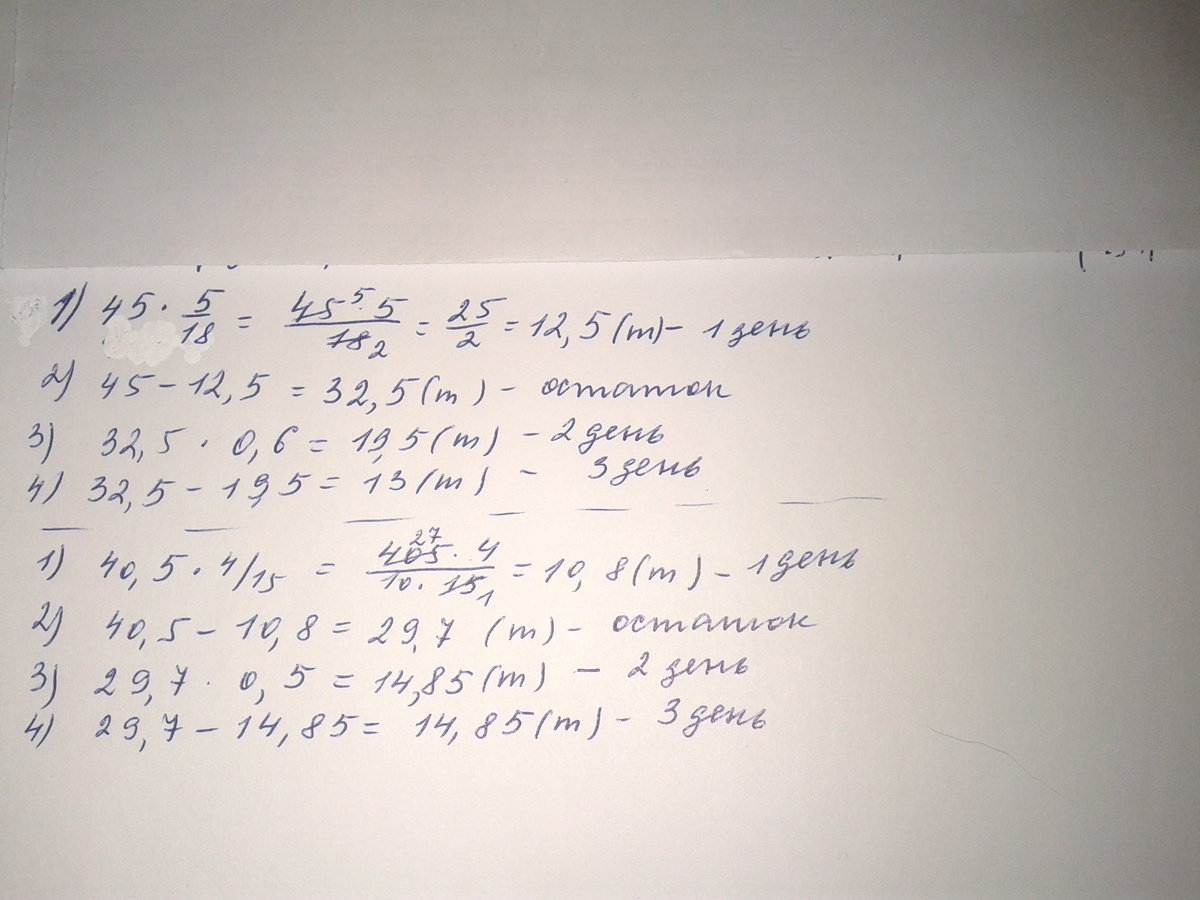 1) 45 · 5/18 = 45⁵ · 5 / 18₂ = 25/2 = 12,5 (т) - 1 день
2) 45 - 12,5 = 32,5 (т) - остаток
3) 32,5 · 0,6 = 19,5 (т) - 2 день
4) 32,5 - 19,5 = 13 (т) - 3 день
1) 40,5 · 4/15 = 405²⁷ · 4 / 10 · 15₁ = 10,8 (т) - 1 день
2) 40,5 - 10,8 = 29,7 (т) - остаток
3) 29,7 · 0,5 = 14,85 (т) - 2 день
4) 29,7 - 14,85 = 14,85 (т) - 3 день